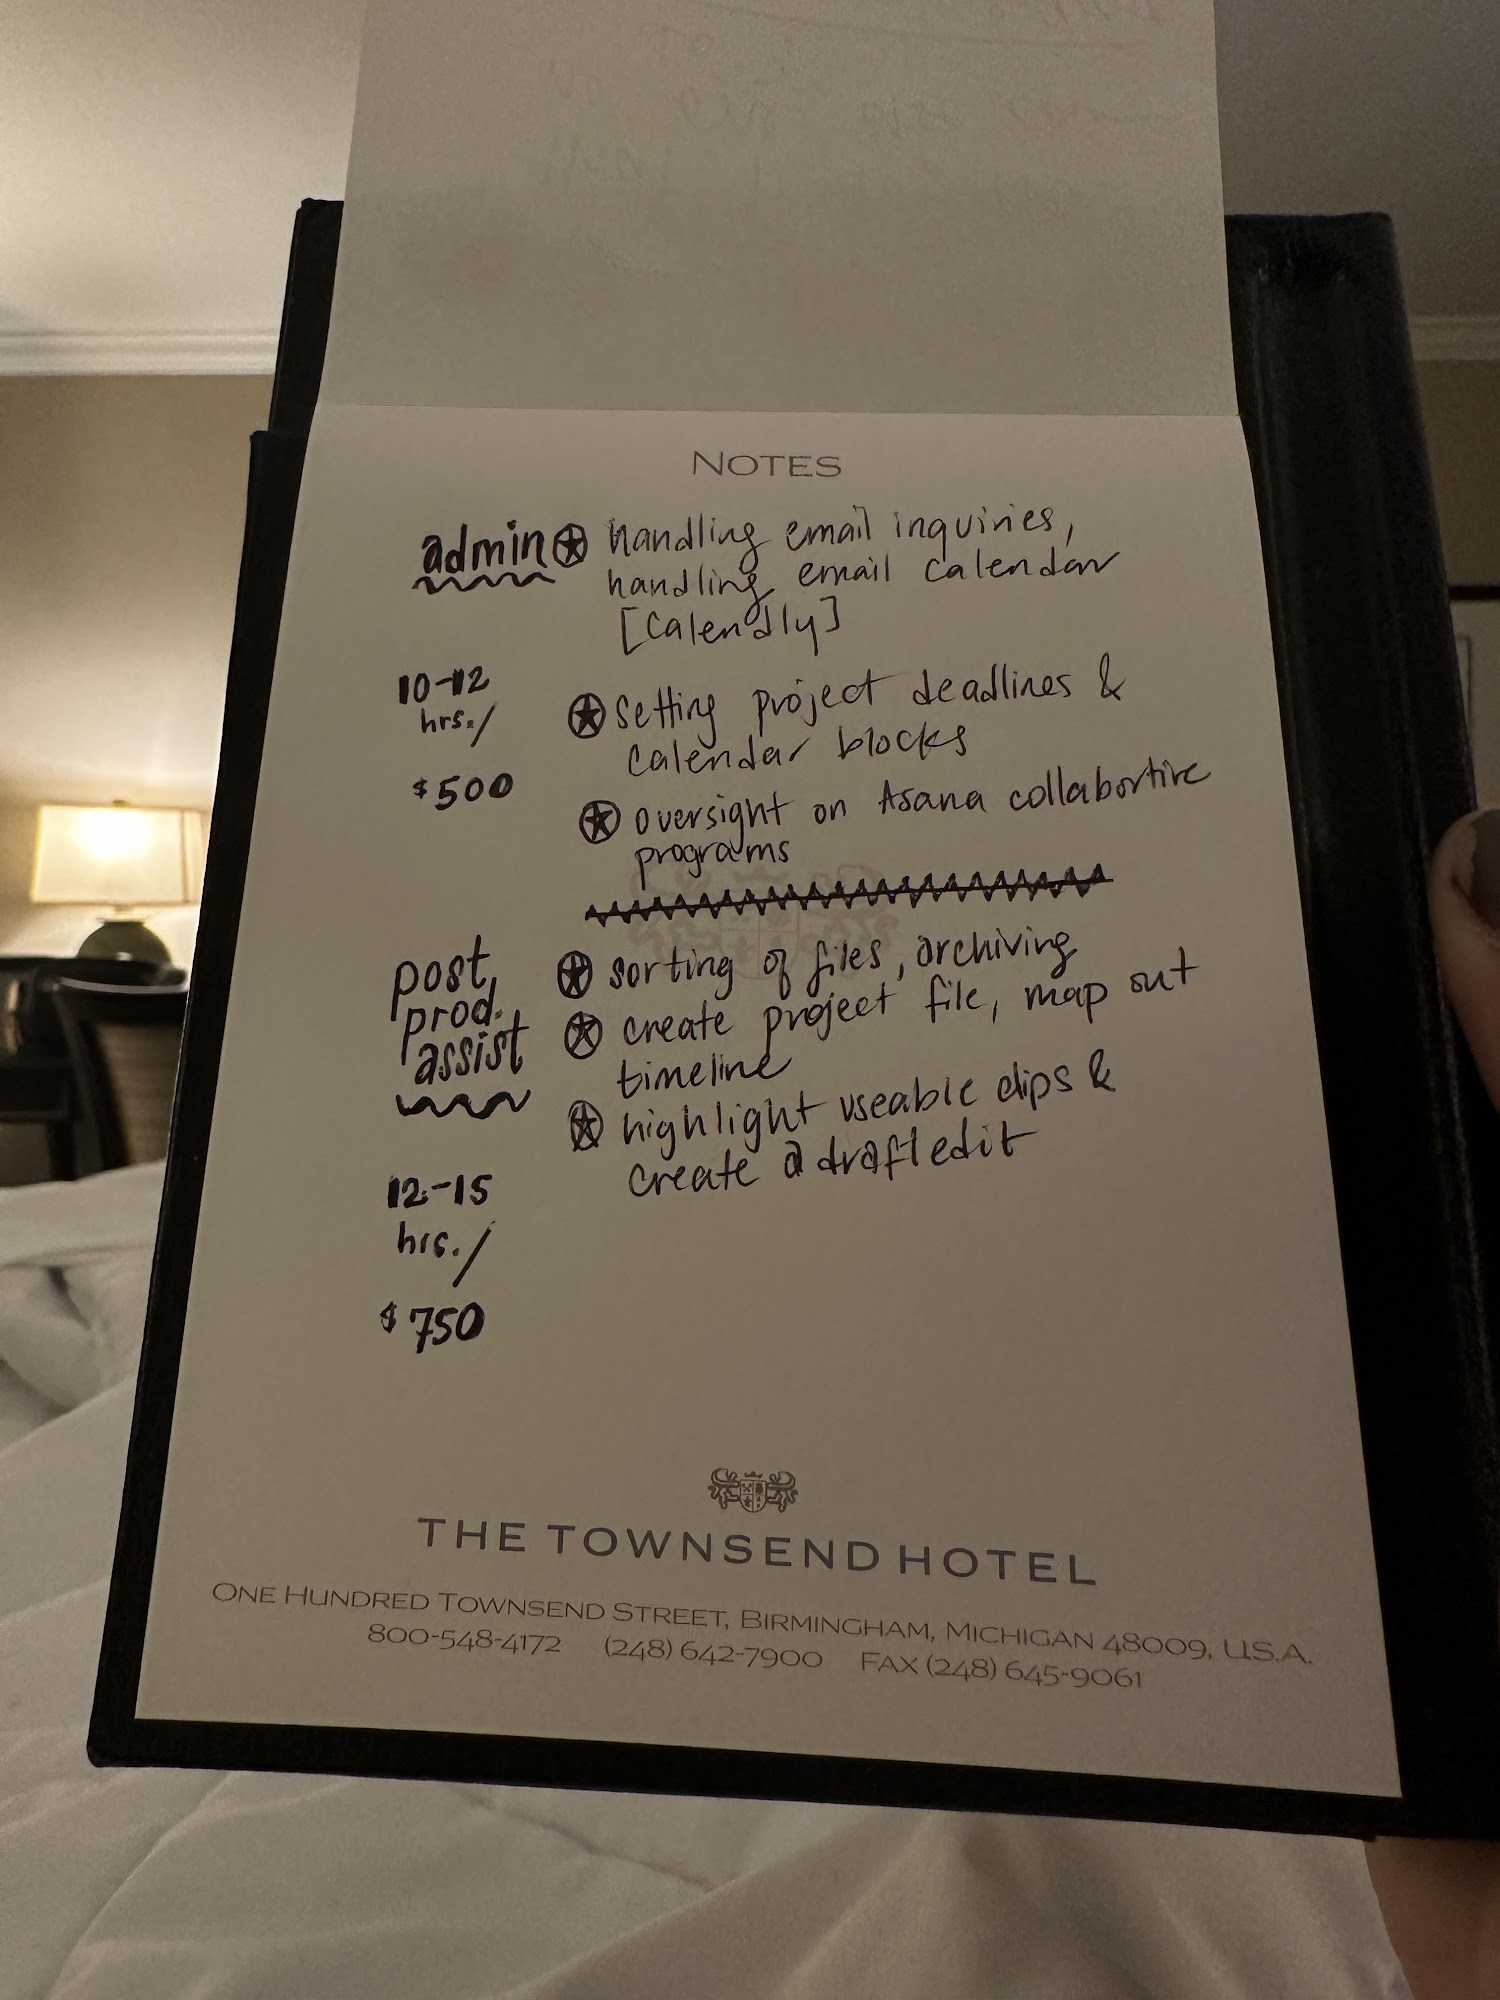 NOTES
admin handling email inquiries,
handling email calendar
[Calendly]
10-12
hrs./
$500
setting project deadlines &
calendar blocks
oversight on Asana collabortive
programs
post
prod.
assist
sorting of files, archiving
create project file, map out
timeline
highlight useable clips &
create a draft edit
12-15
hrs./
$750
THE TOWNSEND HOTEL
ONE HUNDRED TOWNSEND STREET, BIRMINGHAM, MICHIGAN 48009, U.S.A.
800-548-4172 (248) 642-7900 FAX (248) 645-9061